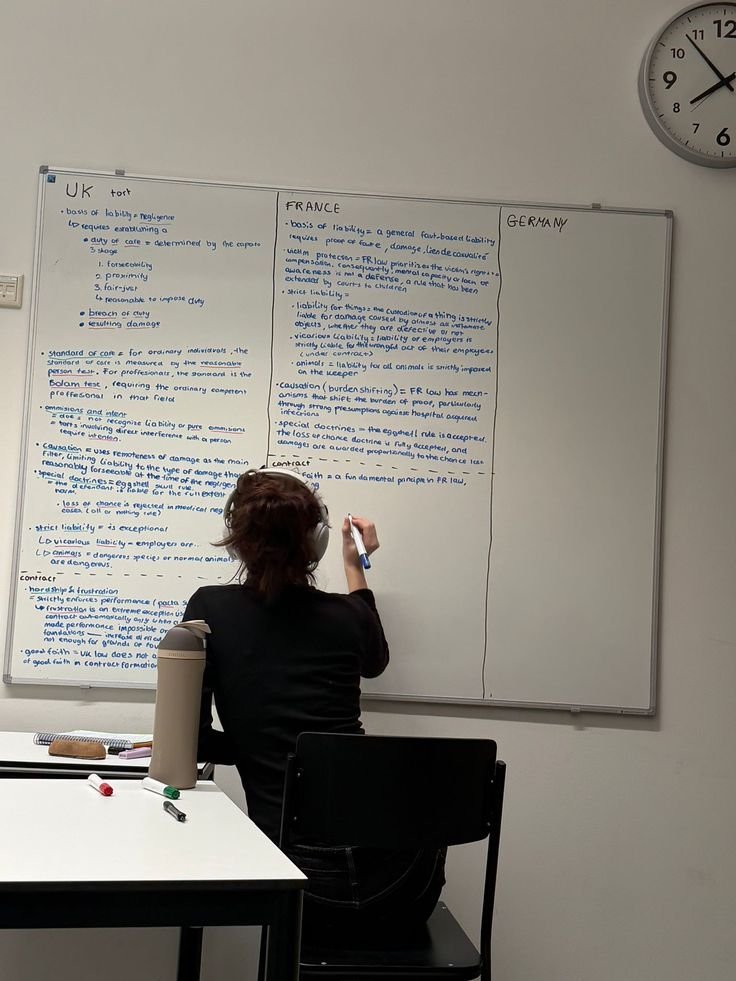 UK tort
• basis of liability = negligence
↳ requires establishing a
• duty of care = determined by the caparo
3 stage
1. forseeability
2. proximity
3. fair-just
↳ reasonable to impose duty
• breach of duty
• resulting damage
• standard of care = for ordinary individuals, the
standard of care is measured by the reasonable
person test. For proffesionals, the standard is the
Bolam test, requiring the ordinary competent
proffesional in that field
• ommisions and intent
= does not recognize liability or pure ommisions
= torts involving direct interference with a person
require intention.
• causation = uses remoteness of damage as the main
filter, limiting liability to the type of damage that
reasonably forseeable at the time of the negligen
• special doctrines = eggshell skull rule.
= the defendant is liable for the full extent
harm.
• loss of chance is rejected in medical neg
cases (all or nothing rule)
• strict liability = is exceptional
↳ vicarious liability – employers are..
↳ animals = dangerous species or normal animals
are dangerous.
contract
• hardship & frustration
= strictly enforces performance (pacta s
↳ frustration is an extreme exception
contract automatically only when
made performance impossible or
foundations — increase
not enough for grounds of
• good faith = UK law does not
of good faith in contract formation
FRANCE
• basis of liability = a general fault-based liability
requires proof of faute, damage, lien de causalité
• victim protection = FR law prioritizes the victim's right to
compensation. consequently, mental capacity or lack of
awareness is not a defense, a rule that has been
extended by courts to children
• strict liability =
• liability for things = the custodian of a thing is strictly
liable for damage caused by almost all inanimate
objects, whether they are defective or not
• vicarious liability = liability of employers is
strictly liable for the wrongful act of their employees
(under contract)
• animals = liability for all animals is strictly imposed
on the keeper
• causation (burden shifting) = FR law has mech-
anisms that shift the burden of proof, particularly
through strong presumptions against hospital acquired
infections
• special doctrines = the eggshell rule is accepted.
the loss of chance doctrine is fully accepted, and
damages are awarded proportionally to the chance lost
contract
faith = a fundamental principle in FR law,
GERMANY
12
11
10
9
8
7
6